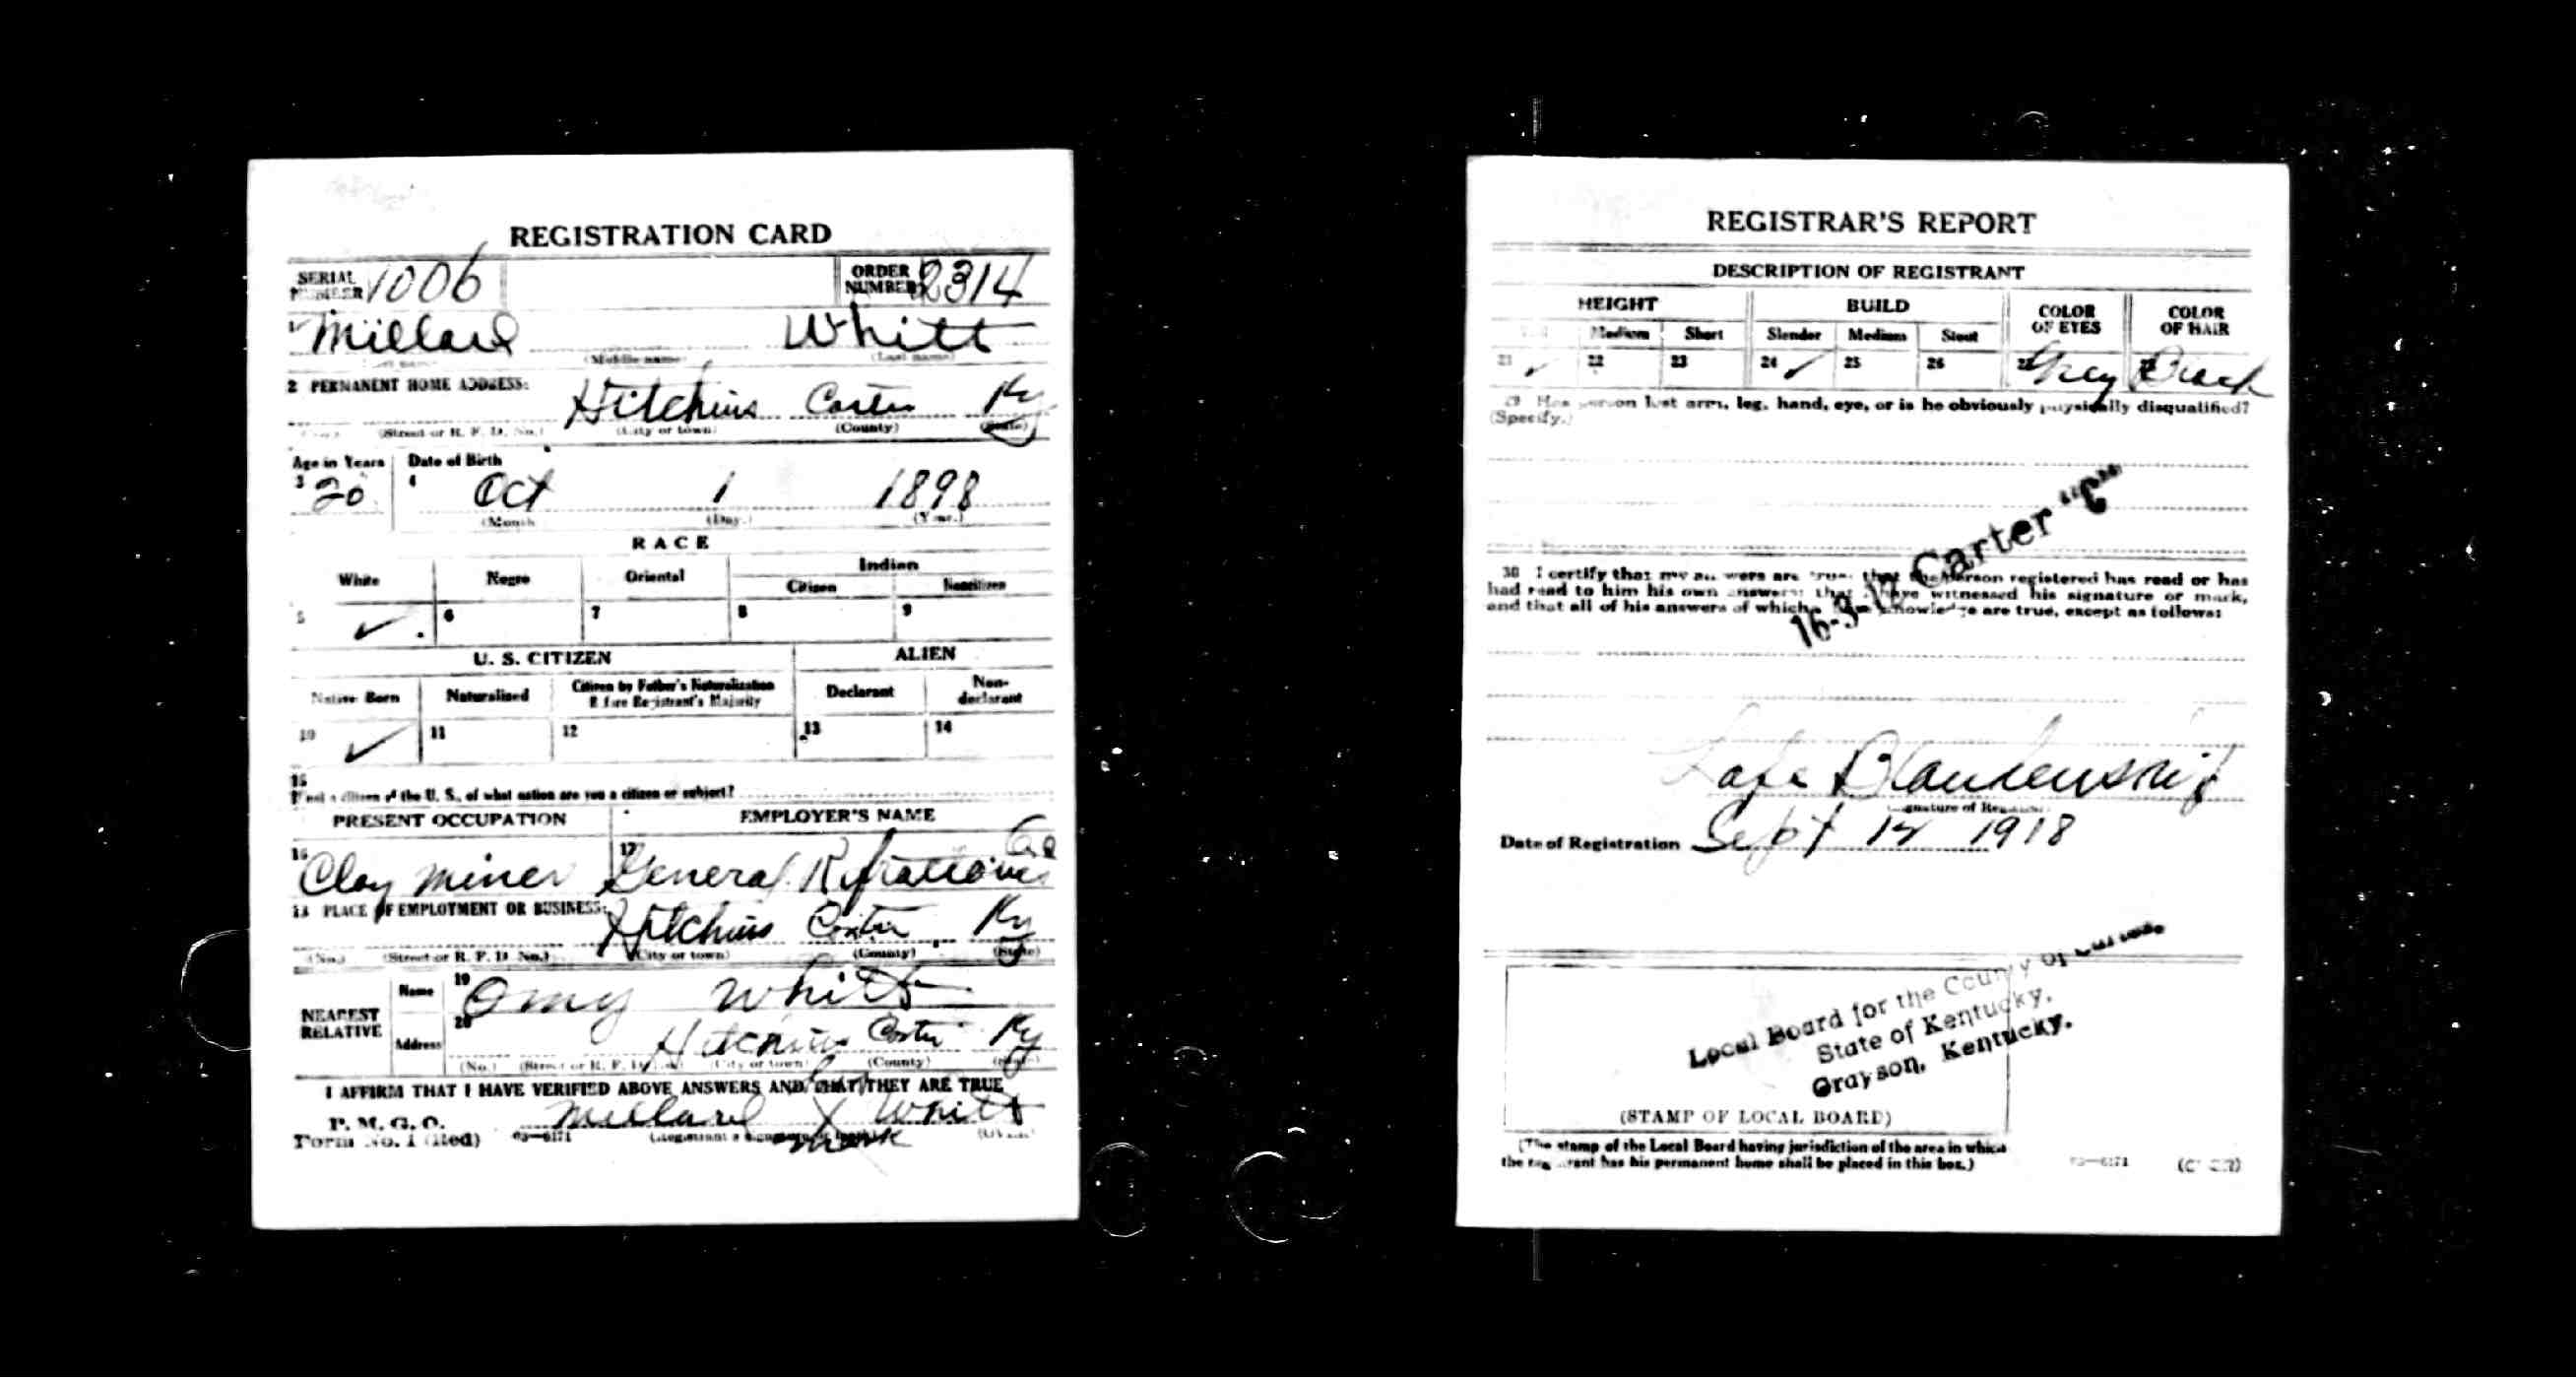 REGISTRATION CARD
SERIAL NUMBER 1006 ORDER NUMBER 2314
1 Millard Whitt
(Middle name) (Last name)
2 PERMANENT HOME ADDRESS:
Hitchins Carter Ky
(No.) (Street or R. F. D. No.) (City or town) (County) (State)
Age in Years Date of Birth
3 20 4 Oct 1 1898
(Month (Day.) (Year.)
RACE
White Negro Oriental Indian
Citizen Noncitizen
5 ✓ 6 7 8 9
U. S. CITIZEN ALIEN
Native Born Naturalized Citizen by Father's Naturalization Before Registrant's Majority Declarant Non-declarant
10 ✓ 11 12 13 14
15
If not a citizen of the U. S., of what nation are you a citizen or subject?
PRESENT OCCUPATION EMPLOYER'S NAME
16 Clay miner 17 General Refractories Co
18 PLACE OF EMPLOYMENT OR BUSINESS:
Hitchins Carter Ky
(No.) (Street or R. F. D. No.) (City or town) (County) (State)
NEAREST RELATIVE Name 19 Omy Whitt
Address 20 Hitchins Carter Ky
(No.) (Street or R. F. D. No.) (City or town) (County) (State)
I AFFIRM THAT I HAVE VERIFIED ABOVE ANSWERS AND THAT THEY ARE TRUE
P. M. G. O.
Form No. 1 (Red) 03—6171 Millard his X mark Whitt
(Registrant's signature or mark)
REGISTRAR'S REPORT
DESCRIPTION OF REGISTRANT
HEIGHT BUILD COLOR OF EYES COLOR OF HAIR
Medium Short Slender Medium Stout
21 ✓ 22 23 24 ✓ 25 26 27 Grey 28 Black
29 Has person lost arm, leg, hand, eye, or is he obviously physically disqualified?
(Specify.)
16-3-12 Carter "C"
30 I certify that my answers are true; that the person registered has read or has
had read to him his own answers; that I have witnessed his signature or mark,
and that all of his answers of which I have knowledge are true, except as follows:
Lafe Blankenship
(Signature of Registrar)
Date of Registration Sept 12 1918
Local Board for the County of Carter
State of Kentucky.
Grayson, Kentucky.
(STAMP OF LOCAL BOARD)
(The stamp of the Local Board having jurisdiction of the area in which
the registrant has his permanent home shall be placed in this box.) 03—6171 (OVER)